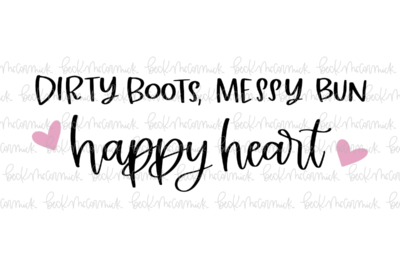 DIRTY BOOTS, MESSY BUN
happy heart